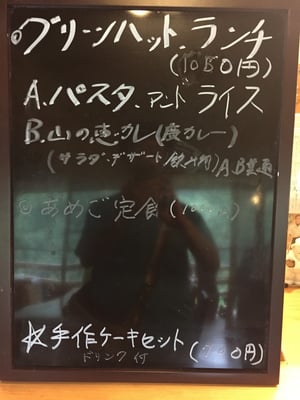 ◎グリーンハット.ランチ
(1080円)
A.パスタ.アンド ライス
B.山の恵.カレー(鹿カレー)
(サラダ.デザート 飲み物)A,B共通
◎あめご定食(
☆手作ケーキセット(
ドリンク付